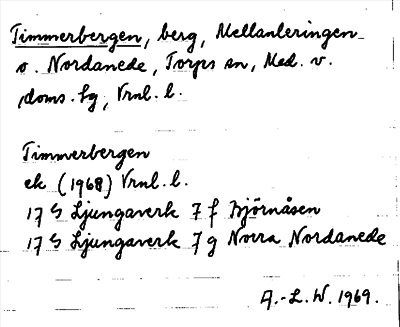 Timmerbergen, berg, Mellanleringen
o. Nordanede, Torps sn, Med. v.
doms. hg, Vrnl. l.
Timmerbergen
ek (1968) Vrnl. l.
17 G Ljungaverk 7 f Björnåsen
17 G Ljungaverk 7 g Norra Nordanede
A.-L.W. 1969.